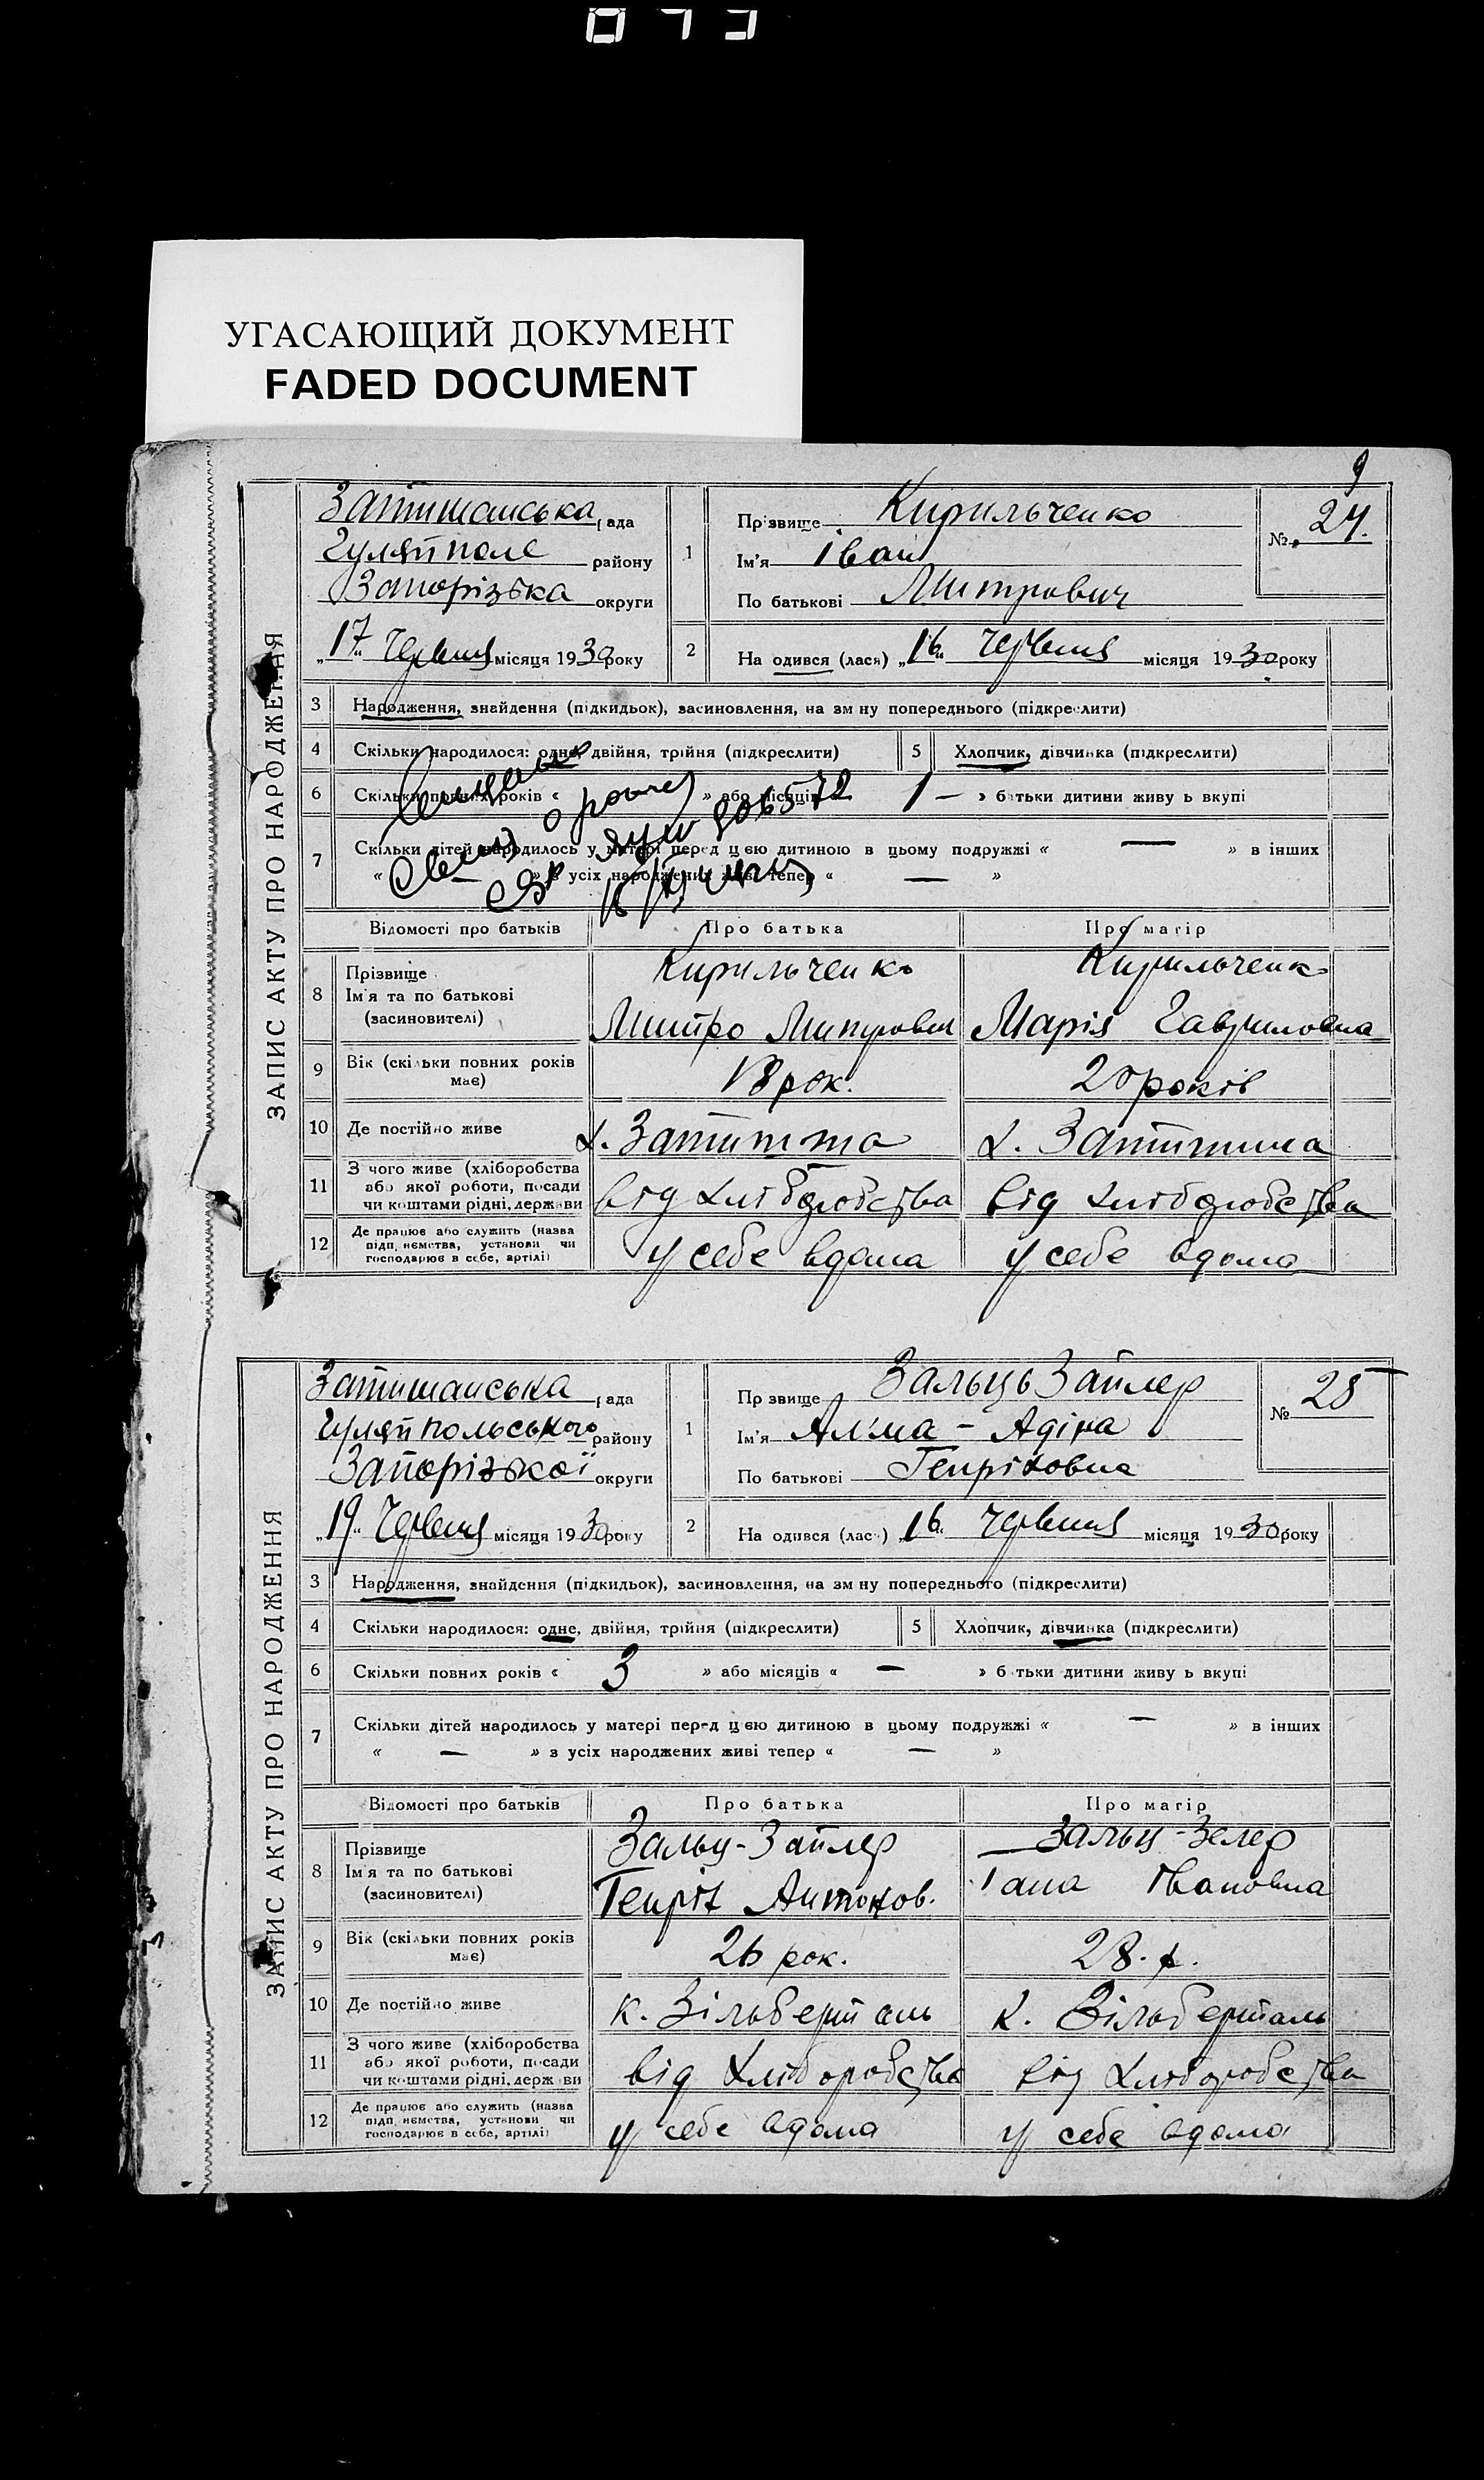 073
УГАСАЮЩИЙ ДОКУМЕНТ
FADED DOCUMENT
9
ЗАПИС АКТУ ПРО НАРОДЖЕННЯ
Затишанська рада
Гуляйполе району
Запорізька округи
„17“ червня місяця 1930 року
1 Прізвище Кирильченко
Ім'я Іван
По батькові Митрович
№ 24.
2 На одився (лася) „16“ червня місяця 1930 року
3 Народження, знайдення (підкидьок), засиновлення, на зм ну попереднього (підкреслити)
4 Скільки народилося: одне, двійня, трійня (підкреслити) 5 Хлопчик, дівчинка (підкреслити)
6 Скільки повних років « » або місяців 1 — » батьки дитини живу ь вкупі
7 Скільки дітей народилось у матері перед цією дитиною в цьому подружжі « — » в інших
« — » з усіх народжених живі тепер « — »
Відомості про батьків Про батька Про матір
8 Прізвище Кирильченко Кирильченко
Ім'я та по батькові
(засиновителі) Митро Митрович Марія Гавриловна
9 Вік (скільки повних років має) 18 рок. 20 років
10 Де постійно живе х. Затишшя х. Затишша
11 З чого живе (хліборобства
або якої роботи, посади
чи коштами рідні, держави від хліборобства від хліборобства
12 Де працює або служить (назва
підп. иємства, установи чи
господарює в себе, артілі) у себе вдома у себе вдома
ЗАПИС АКТУ ПРО НАРОДЖЕННЯ
Затишанська рада
Гуляйпольського району
Запорізької округи
„19“ червня місяця 1930 року
1 Пр звище Зальць Зайлер
Ім'я Альма - Адіна
По батькові Генріховна
№ 25
2 На одився (лас ) „16“ червня місяця 1930 року
3 Народження, знайдення (підкидьок), засиновлення, на зм ну попереднього (підкреслити)
4 Скільки народилося: одне, двійня, трійня (підкреслити) 5 Хлопчик, дівчинка (підкреслити)
6 Скільки повних років « 3 » або місяців « — » б тьки дитини живу ь вкупі
7 Скільки дітей народилось у матері перед цією дитиною в цьому подружжі « — » в інших
« — » з усіх народжених живі тепер « — »
Відомості про батьків Про батька Про матір
8 Прізвище Зальц-Зайлер Зальц-Зелер
Ім'я та по батькові
(засиновителі) Генріх Антонов. Івановна
9 Вік (скільки повних років має) 26 рок. 28. р.
10 Де постійно живе к. Зільберталь к. Зільберталь
11 З чого живе (хліборобства
або якої роботи, посади
чи коштами рідні, держ ви від хліборобства від хліборобства
12 Де працює або служить (назва
підп. иємства, установи чи
господарює в себе, артілі) у себе вдома у себе вдома